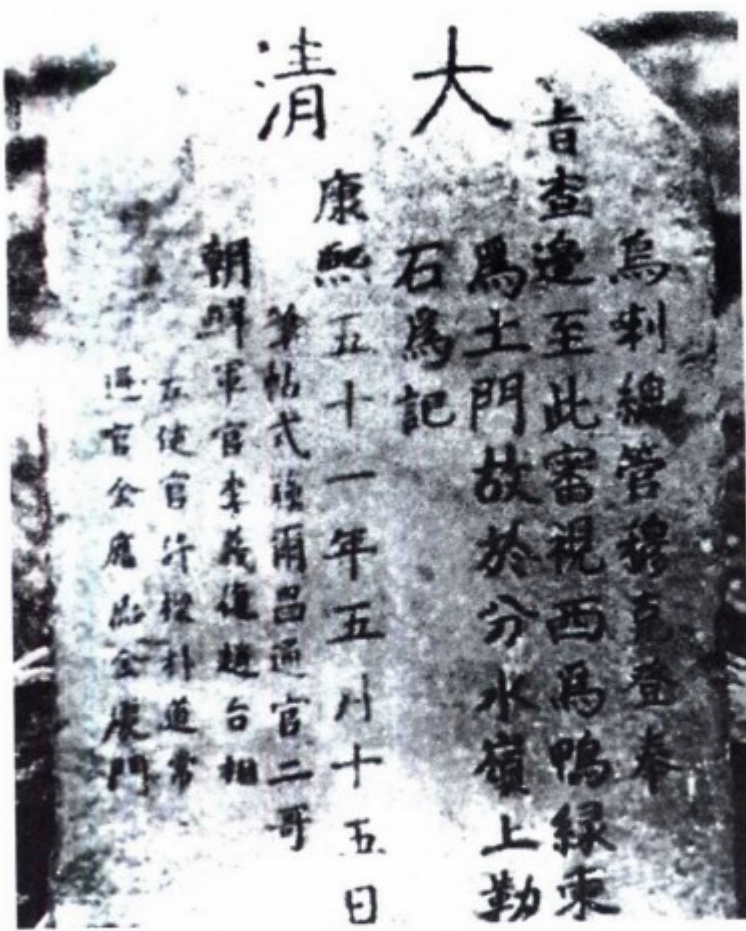 大清
烏喇總管穆克登奉
旨查邊至此審視西爲鴨緑東
爲土門故於分水嶺上勒
石爲記
康熙五十一年五月十五日
筆帖式蘇爾昌通官二哥
朝鮮軍官李義復趙台相
差使官許樑朴道常
通官金應金慶門